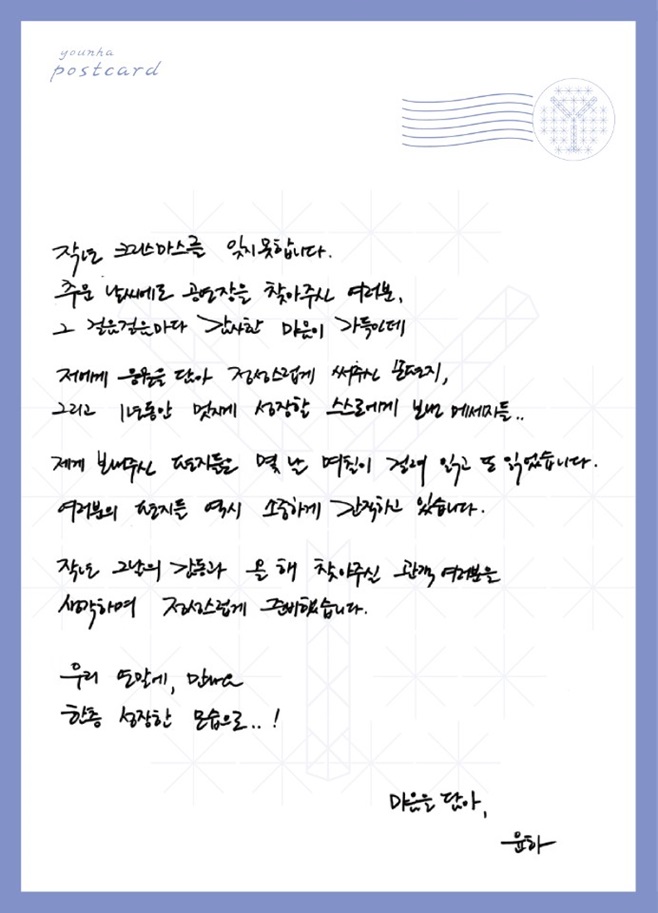 younha
postcard
작년 크리스마스를 잊지 못합니다.
추운 날씨에도 공연장을 찾아주신 여러분,
그 걸음걸음마다 감사한 마음이 가득인데
저에게 응원을 담아 정성스럽게 써주신 손편지,
그리고 1년동안 멋지게 성장할 스스로에게 보낸 메세지들..
제게 보내주신 편지들은 몇 날 며칠이 걸려 읽고 또 읽었습니다.
여러분의 편지들 역시 소중하게 간직하고 있습니다.
작년 그날의 감동과 올 해 찾아주신 관객 여러분을
생각하며 정성스럽게 준비했습니다.
우리 연말에, 만나요
한층 성장한 모습으로..!
마음을 담아,
윤하